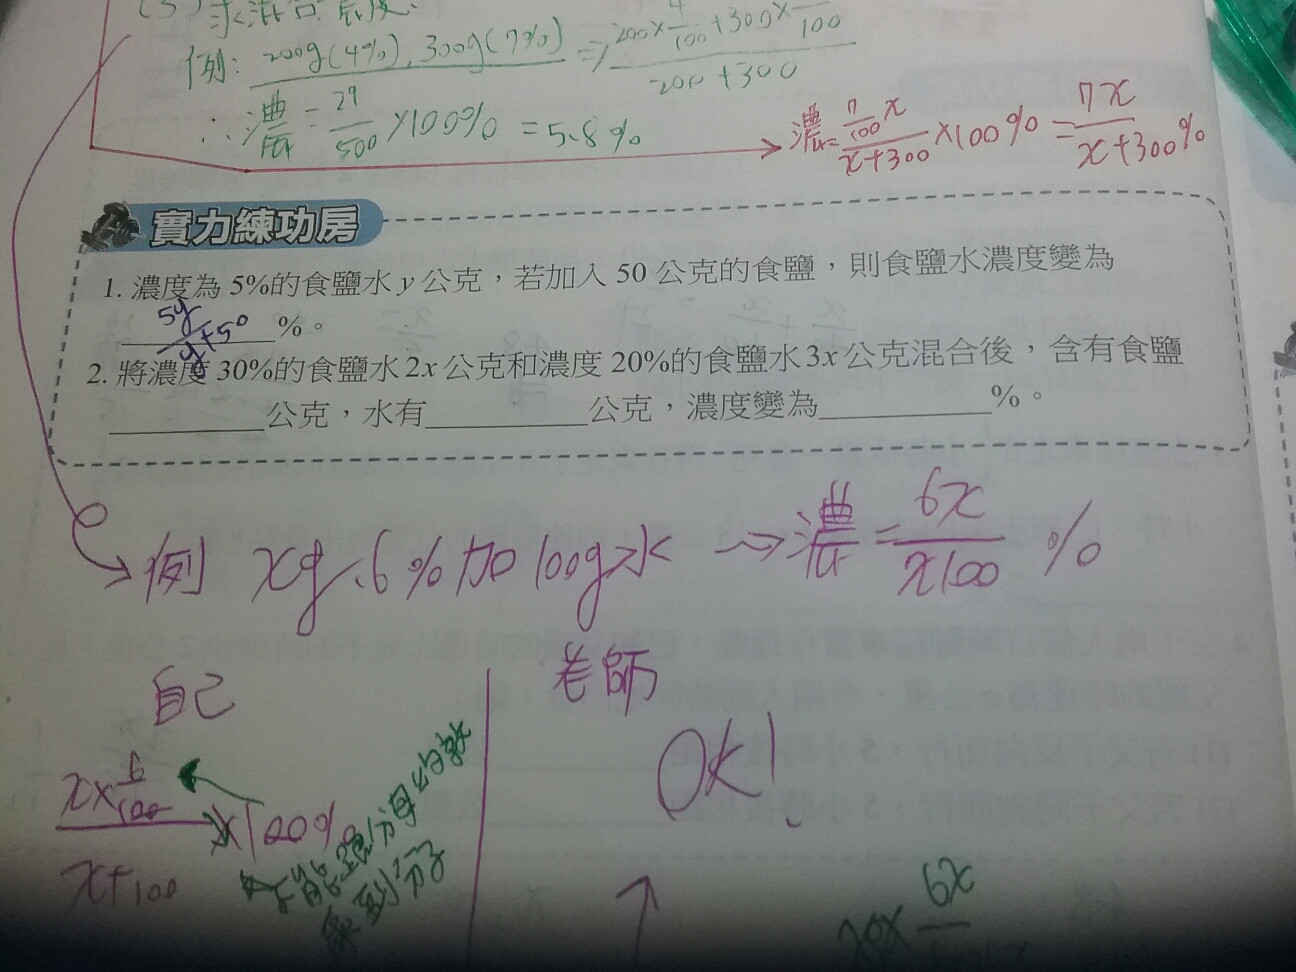 (3) 求混合濃度:
例: 200g(4%), 300g(7%) ⇒ 200×4/100+300×7/100 / 200+300
∴濃度=29/500×100%=5.8%
濃度=7/100x / x+300 ×100%=7x / x+300 %
實力練功房
1. 濃度為 5%的食鹽水 y 公克，若加入 50 公克的食鹽，則食鹽水濃度變為
5y / y+50 %。
2. 將濃度 30%的食鹽水 2x 公克和濃度 20%的食鹽水 3x 公克混合後，含有食鹽
公克，水有 公克，濃度變為 %。
例 xg、6%加100g水 → 濃度=6x / x100 %
自己
老師
x×6/100 / x+100 ×100%
OK!
不能跟分母約
乘到分子
6x